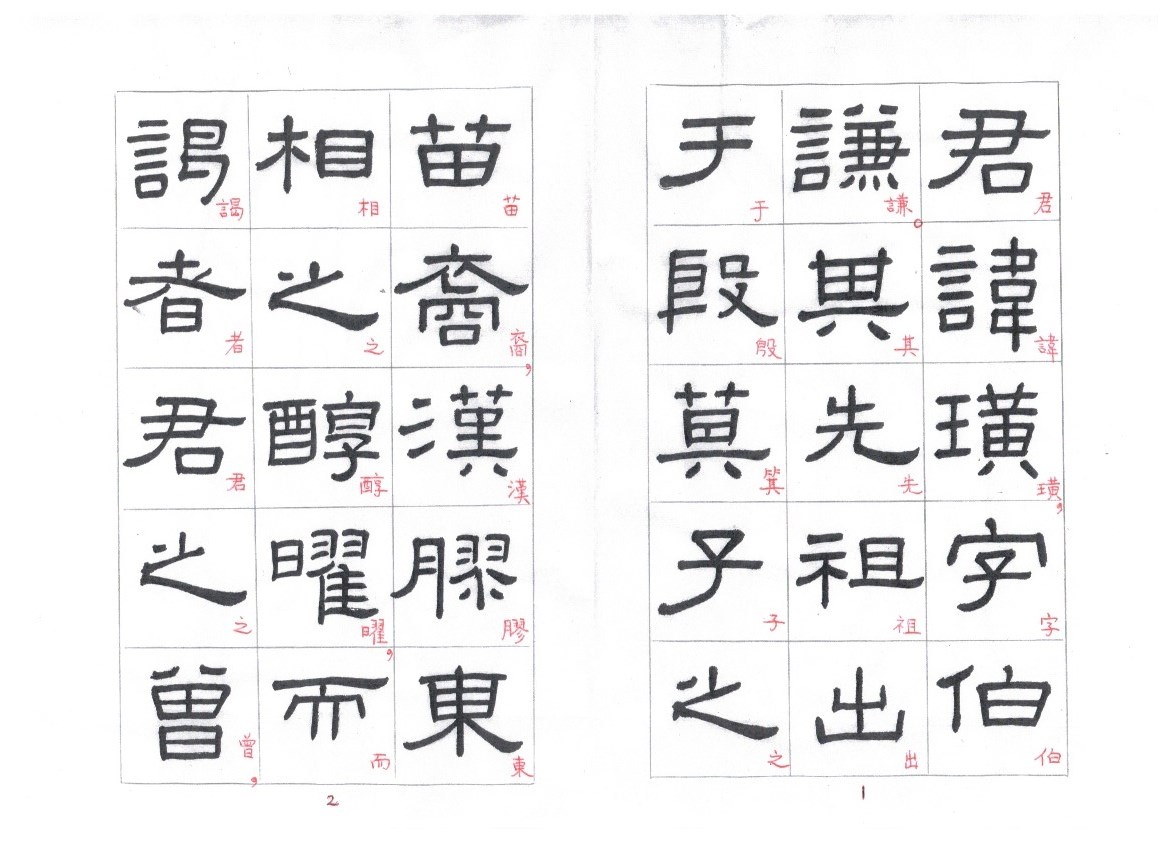 君諱璜字伯
謙其先祖出
于殷箕子之
苗裔漢膠東
相之醇曜而
謁者君之曾
君諱璜，字伯
謙。其先祖出
于殷箕子之
1
苗裔，漢膠東
相之醇曜，而
謁者君之曾，
2